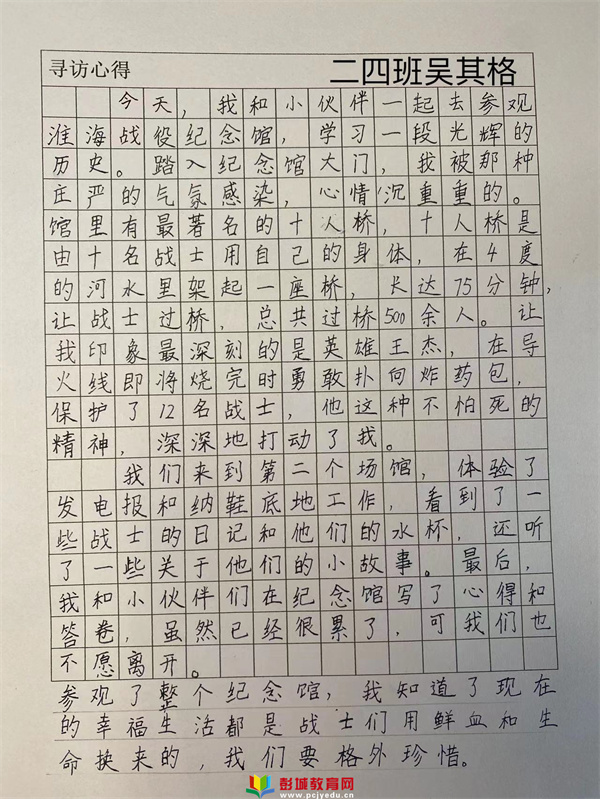 寻访心得
二四班吴其格
今天，我和小伙伴一起去参观
淮海战役纪念馆，学习一段光辉的
历史。踏入纪念馆大门，我被那种
庄严的气氛感染，心情沉重重的。
馆里有最著名的十人桥，十人桥是
由十名战士用自己的身体，在4度
的河水里架起一座桥，长达75分钟，
让战士过桥，总共过桥500余人。让
我印象最深刻的是英雄王杰，在导
火线即将烧完时勇敢扑向炸药包，
保护了12名战士，他这种不怕死的
精神，深深地打动了我。
我们来到第二个场馆，体验了
发电报和纳鞋底地工作，看到了一
些战士的日记和他们的水杯，还听
了一些关于他们的小故事。最后，
我和小伙伴们在纪念馆写了心得和
答卷，虽然已经很累了，可我们也
不愿离开。
参观了整个纪念馆，我知道了现在
的幸福生活都是战士们用鲜血和生
命换来的，我们要格外珍惜。
彭城教育网
www.pcjyedu.cn